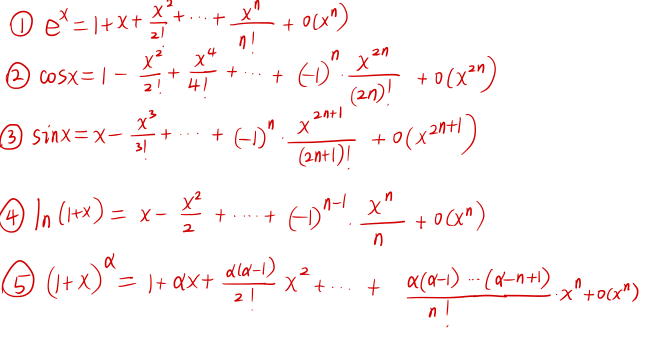 ① eˣ = 1 + x + x²/2! + ··· + xⁿ/n! + o(xⁿ)
② cosx = 1 − x²/2! + x⁴/4! + ··· + (−1)ⁿ · x²ⁿ/(2n)! + o(x²ⁿ)
③ sinx = x − x³/3! + ··· + (−1)ⁿ · x²ⁿ⁺¹/(2n+1)! + o(x²ⁿ⁺¹)
④ ln(1+x) = x − x²/2 + ···· + (−1)ⁿ⁻¹ · xⁿ/n + o(xⁿ)
⑤ (1+x)^α = 1 + αx + α(α−1)/2! x² + ··· + α(α−1)···(α−n+1)/n! · xⁿ + o(xⁿ)